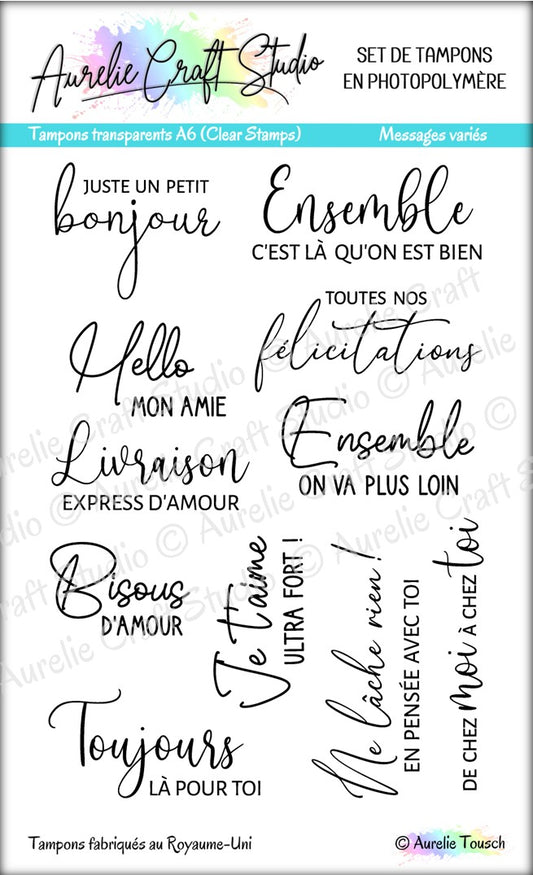 Aurelie Craft Studio
SET DE TAMPONS
EN PHOTOPOLYMÈRE
Tampons transparents A6 (Clear Stamps)
Messages variés
JUSTE UN PETIT
bonjour
Ensemble
C'EST LÀ QU'ON EST BIEN
TOUTES NOS
félicitations
Hello
MON AMIE
Ensemble
ON VA PLUS LOIN
Livraison
EXPRESS D'AMOUR
Bisous
D'AMOUR
Je t'aime
ULTRA FORT !
Ne lâche rien !
EN PENSÉE AVEC TOI
DE CHEZ moi À CHEZ toi
Toujours
LÀ POUR TOI
Tampons fabriqués au Royaume-Uni
© Aurelie Tousch
© Aurelie Craft Studio © Aurelie Craft Studio © Aurelie Craft Studio